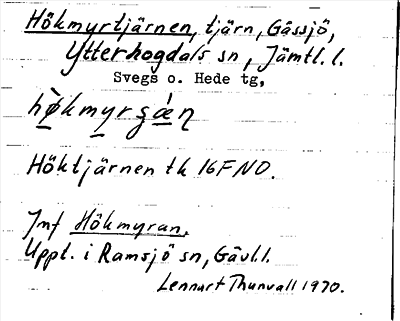 Hökmyrtjärnen, tjärn, Gåssjö,
Ytterhogdals sn, Jämtl. l.
Svegs o. Hede tg,
hø̀kmyrʂǽn̥
Höktjärnen tk 16F NO.
Jmf Hökmyran.
Uppt. i Ramsjö sn, Gävl. l.
Lennart Thunvall 1970.